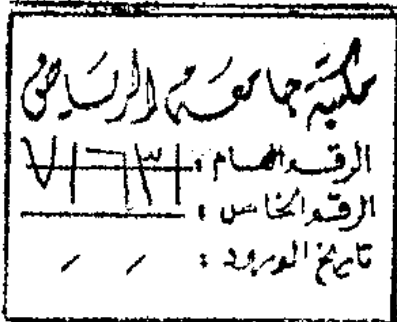 مكتبة جامعة الرياض
الرقم العام : ٧١٦٣١
الرقم الخاص :
تاريخ الورود : / /